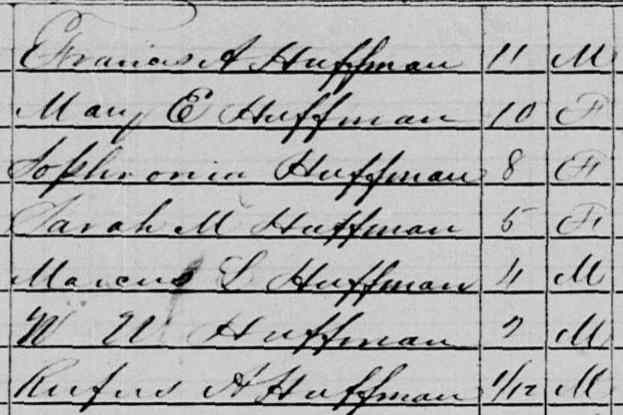 Francis A Huffman 11 M
Mary E Huffman 10 F
Sophronia Huffman 8 F
Sarah M Huffman 5 F
Marcus L Huffman 4 M
W W Huffman 2 M
Rufus A Huffman 1/12 M